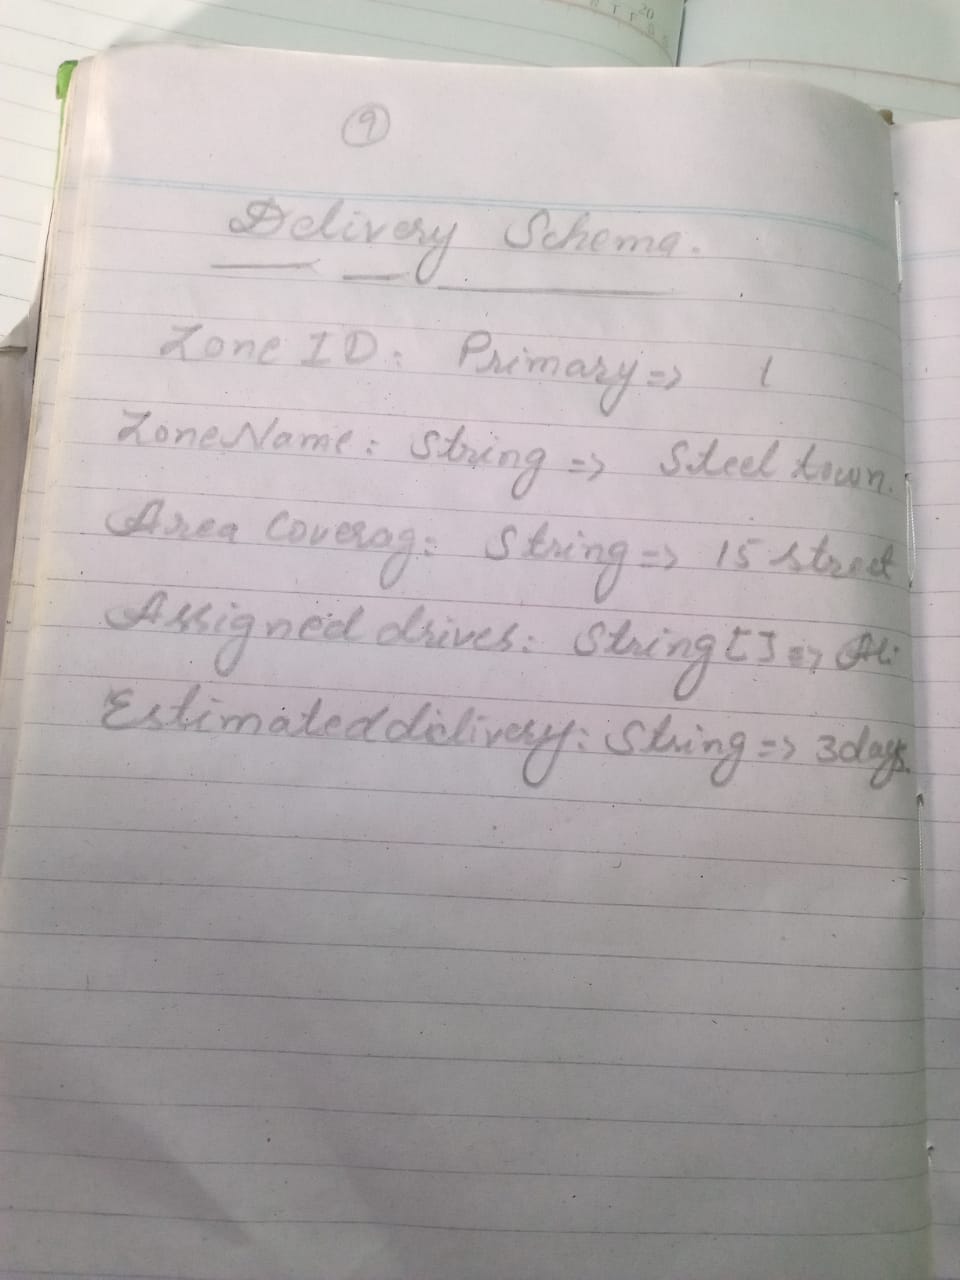 9
Delivery Schema.
Zone ID: Primary => 1
ZoneName: String => Steel town.
Area Coverag: String => 15 street
Assigned drives: String[] => Ali
Estimated delivery: String => 3days.